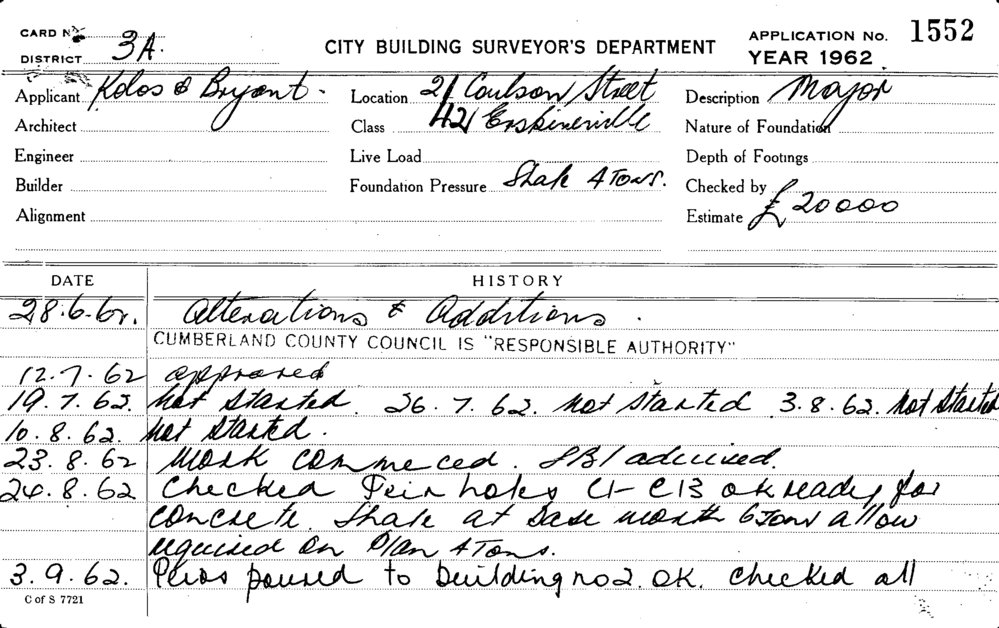 CARD No
DISTRICT 3A.
CITY BUILDING SURVEYOR'S DEPARTMENT
APPLICATION No. 1552
YEAR 1962
Applicant Kolos & Bryant. Location 21 Coulson Street Description Major
Architect Class 421 Erskineville Nature of Foundation
Engineer Live Load Depth of Footings
Builder Foundation Pressure Shale 4 Tons. Checked by
Alignment Estimate £20000
DATE HISTORY
28.6.62. Alterations & Additions.
CUMBERLAND COUNTY COUNCIL IS "RESPONSIBLE AUTHORITY"
12.7.62 approved
19.7.62. Not started. 26.7.62. Not started 3.8.62. Not started
10.8.62. Not started.
23.8.62 Work commeced. SBI adviised.
24.8.62 Checked Peir holes C1-C13 ok ready for
concrete. Shale at base worth 6 Tons allow
required on Plan 4 Tons.
3.9.62. Piers poured to building no 2. OK. Checked all
C of S 7721